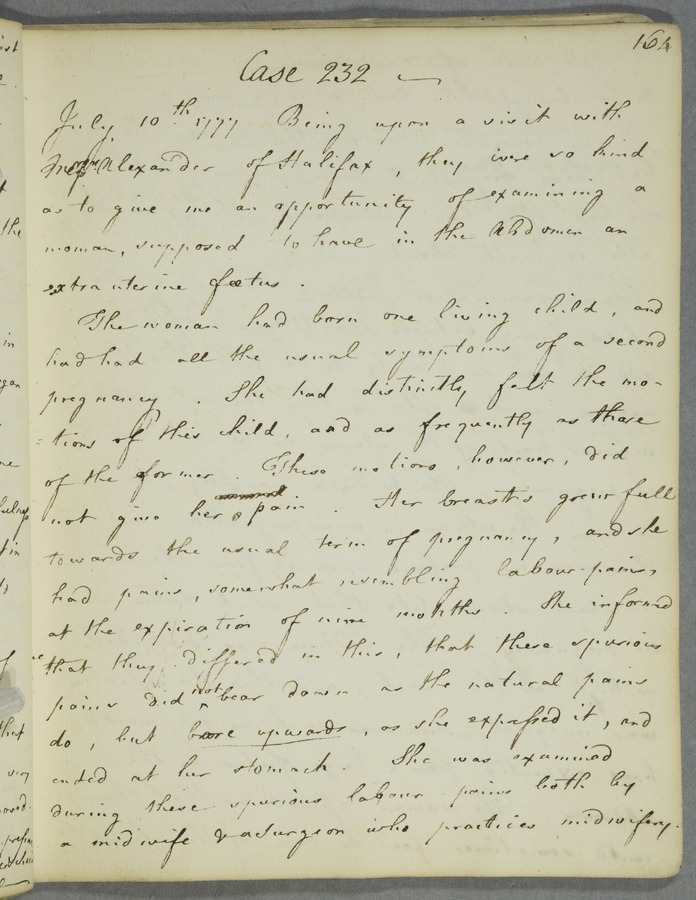 164
Case 232 —
July 10th 1777 Being upon a visit with
Alexander of Halifax, they were so kind
as to give me an opportunity of examining a
woman, supposed to have in the Abdomen an
extra uterine foetus.
The woman had born one living child, and
had had all the usual symptoms of a second
pregnancy. She had distinctly felt the mo-
=tions of this child, and as frequently as those
of the former. These motions, however, did
not give her pain. Her breasts grew full
towards the usual term of pregnancy, and she
had pains, somewhat resembling labour-pains,
at the expiration of nine months. She informed
that they differed in this, that these spurious
pains did not bear down as the natural pains
do, but bore upwards, as she expressed it, and
ended at her stomach. She was examined
during these spurious labour pains both by
a midwife & a Surgeon who practices midwifery.